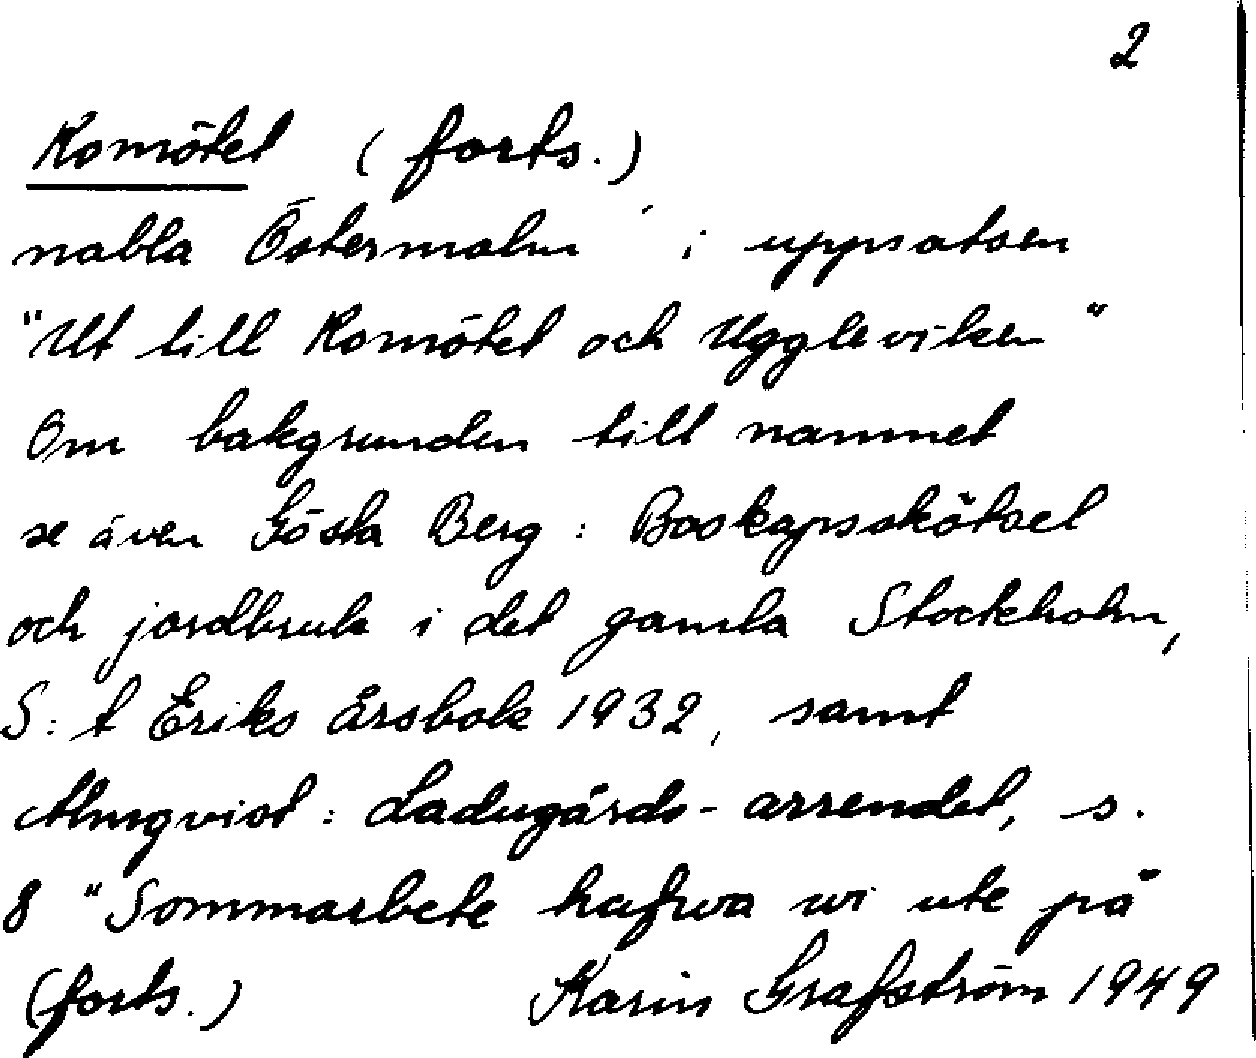 2
Komötet (forts.)
nabla Östermalm i uppsatsen
"Ut till Komötet och Uggleviken"
Om bakgrunden till namnet
se även Gösta Berg: Boskapsskötsel
och jordbruk i det gamla Stockholm,
S:t Eriks årsbok 1932, samt
Almqvist: Ladugårds-arrendet, s.
8 "Sommarbete hafwa wi ute på
(forts.) Karin Grafström 1949